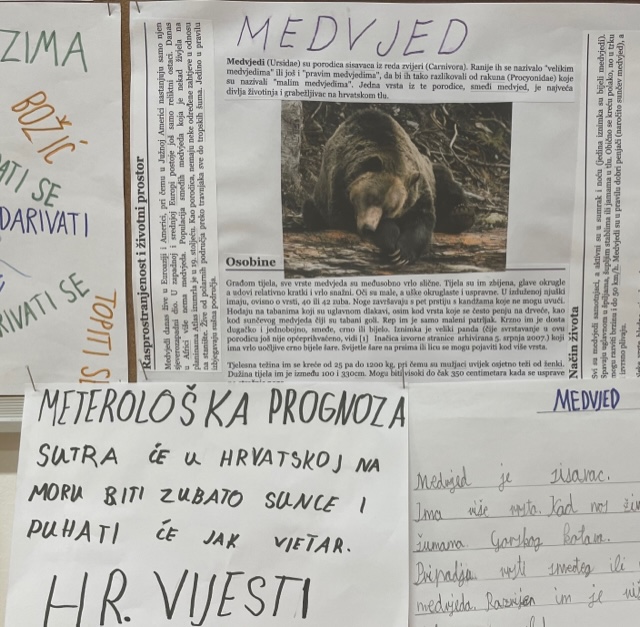 ZIMA
BOŽIĆ
ATI SE
DARIVATI
RIVATI SE
TOPITI SE
MEDVJED
Medvjedi (Ursidae) su porodica sisavaca iz reda zvijeri (Carnivora). Ranije ih se nazivalo "velikim
medvjedima" ili još i "pravim medvjedima", da bi ih tako razlikovali od rakuna (Procyonidae) koje
su nazivali "malim medvjedima". Jedna vrsta iz te porodice, smeđi medvjed, je najveća
divlja životinja i grabežljivac na hrvatskom tlu.
Rasprostranjenost i životni prostor
Medvjedi danas žive u Euroaziji i Americi, pri čemu u Južnoj Americi nastanjuju samo njen
sjeverozapadni dio. U zapadnoj i srednjoj Europi postoje još samo reliktni ostaci. Danas
u Africi više nema medvjeda. Populacija smeđih medvjeda koja je nekad živjela na
planinama Atlas iznrnda je u 19. stoljeću. Kao porodica, nemaju neke određene zahtjeve u odnosu
na stanište. Žive od polarnih područja preko travnjaka sve do tropskih šuma. Jedino u pravilu
izbjegavaju sušna područja.
Osobine
Građom tijela, sve vrste medvjeda su međusobno vrlo slične. Tijelo su im zbijena, glave okrugle
a udovi relativno kratki i vrlo snažni. Oči su male, a uške okruglaste i uspravne. U izduženoj njuški
imaju, ovisno o vrsti, 40 ili 42 zuba. Noge završavaju s pet prstiju s kandžama koje ne mogu uvući.
Hodaju na tabanima koji su uglavnom dlakavi, osim kod vrsta koje se često penju na drveće, kao
kod sunčevog medvjeda čiji su tabani goli. Rep im je samo maleni patrljak. Krzno im je dosta
dugačko i jednobojno, smeđe, crno ili bijelo. Iznimka je veliki panda (čije svrstavanje u ovu
porodicu još nije općeprihvaćeno, vidi [1] Inačica izvorne stranice arhivirana 5. srpnja 2007.) koji
ima vrlo uočljive crno bijele šare. Svijetle šare na prsima ili licu se mogu pojaviti kod više vrsta.
Tjelesna težina im se kreće od 25 pa do 1200 kg, pri čemu su mužjaci uvijek osjetno teži od ženki.
Dužina tijela im je između 100 i 330cm. Mogu biti visoki do čak 350 centimetara kada se usprave
Način života
Svi su medvjedi samotnjaci, a aktivni su u sumrak i noću (jedina iznimka su bijeli medvjedi).
MEDVJED
METEROLOŠKA PROGNOZA
SUTRA ĆE U HRVATSKOJ NA
MORU BITI ZUBATO SUNCE I
PUHATI ĆE JAK VJETAR.
HR. VIJESTI
Medvjed je sisavac.
Ima više vrsta. Kod nas živ
šumama Gorskog Kotara.
Pripadja vrsti smeđeg ili
medvjeda. Razvijen im je